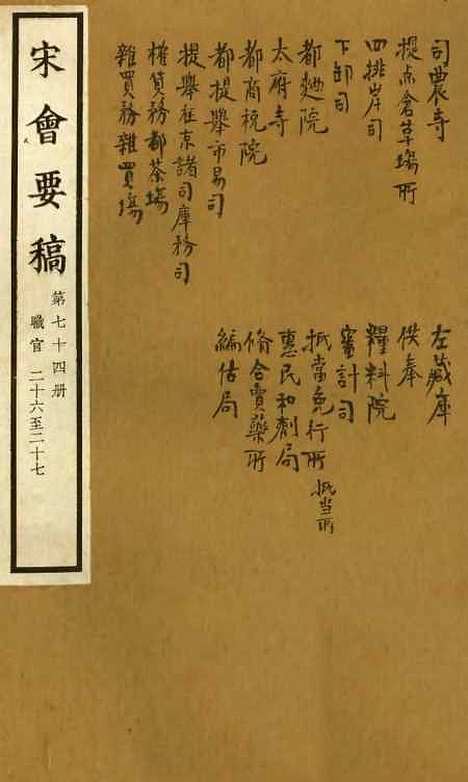 司農寺
提点倉草塲所
四排岸司
下卸司
都麴院
太府寺
都商稅院
都提舉市易司
提舉在京諸司庫務司
榷貨務都茶塲
雜買務雜買塲
左藏庫
供奉
糧料院
審計司
抵當免行所 抵当所
惠民和劑局
脩合賣藥所
編估局
宋會要稿
第七十四册
職官 二十六至二十七